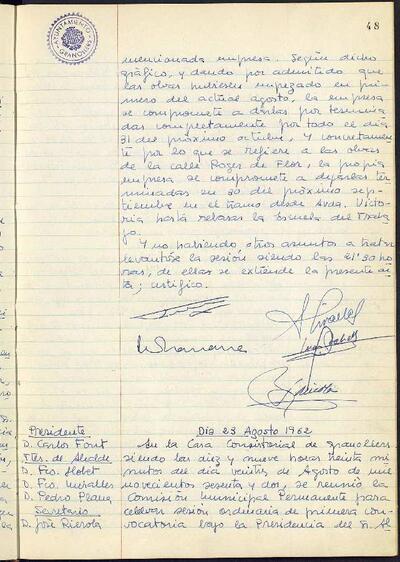 48
AYUNTAMIENTO
GRANOLLERS
mencionada empresa. Según dicho
gráfico, y dando por admitido que
las obras pudiesen empezado en pri-
mero del actual agosto, la empresa
se compromete a darlas por termina
das completamente por todo el dia
31 del próximo octubre, y concretamen
te por lo que se refiere a las obras
de la calle Roger de Flor, la propia
empresa se compromete a dejarlas ter
minadas en 30 del próximo sep-
tiembre en el tramo desde Avda. Victo-
ria hasta rebasar la Escuela del Traba
jo.
Y no habiendo otros asuntos a tratar
levantóse la sesión siendo las 21'30 ho
ras, de ellas se extiende la presente ac
ta; certifico.
Presidente
D. Carlos Font
Ttes. de Alcalde
D. Fco. Llobet
D. Fco. Miralles
D. Pedro Plana
Secretario
D. José Rierola
Dia 23 Agosto 1962
En la Casa Consistorial de Granollers
siendo las diez y nueve horas treinta mi
nutos del dia veintitrés de Agosto de mil
novecientos sesenta y dos, se reunió la
Comisión Municipal Permanente para
celebrar sesión ordinaria de primera con-
vocatoria bajo la Presidencia del Sr. Al